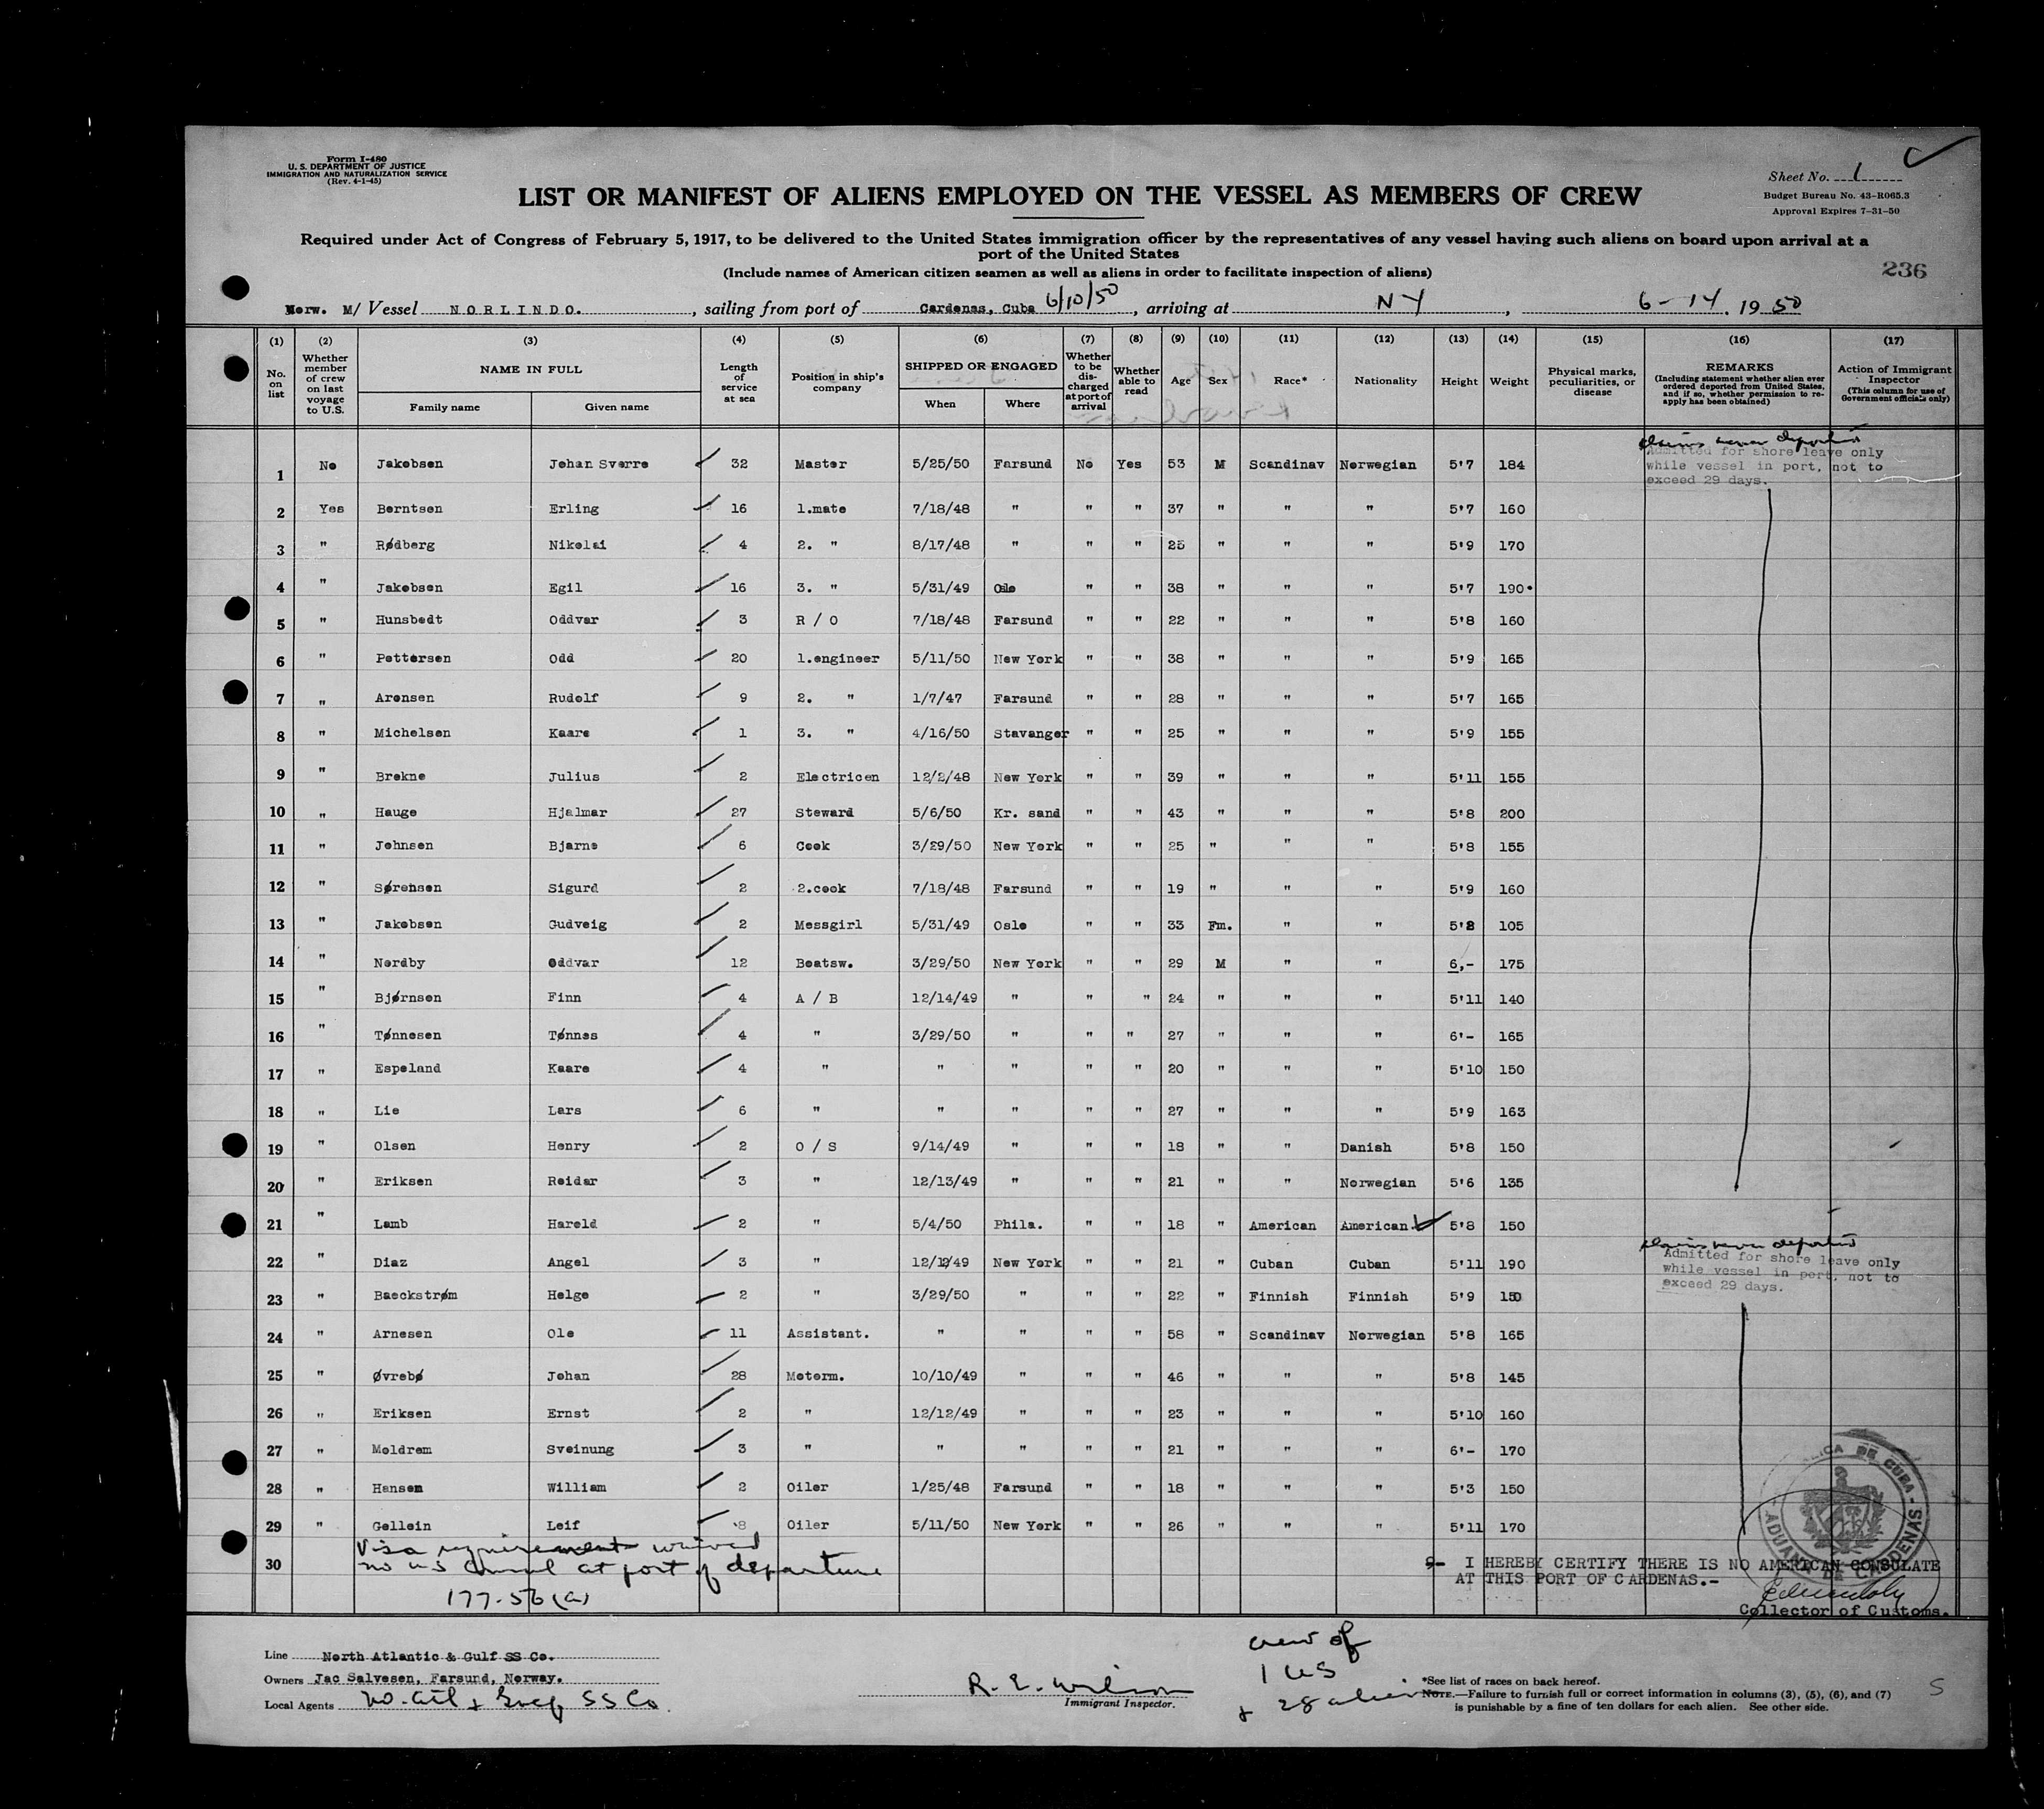 Form I-480
U. S. DEPARTMENT OF JUSTICE
IMMIGRATION AND NATURALIZATION SERVICE
(Rev. 4-1-45)
Sheet No. 1
Budget Bureau No. 43-R065.3
Approval Expires 7-31-50
LIST OR MANIFEST OF ALIENS EMPLOYED ON THE VESSEL AS MEMBERS OF CREW
Required under Act of Congress of February 5, 1917, to be delivered to the United States immigration officer by the representatives of any vessel having such aliens on board upon arrival at a
port of the United States
(Include names of American citizen seamen as well as aliens in order to facilitate inspection of aliens)
236
Norw. M/ Vessel NORLINDO. , sailing from port of Cardenas, Cuba 6/10/50 , arriving at NY , 6-14 , 19 50
(1) No. on list (2) Whether member of crew on last voyage to U.S. (3) NAME IN FULL Family name Given name (4) Length of service at sea (5) Position in ship's company (6) SHIPPED OR ENGAGED When Where (7) Whether to be discharged at port of arrival (8) Whether able to read (9) Age (10) Sex (11) Race* (12) Nationality (13) Height (14) Weight (15) Physical marks, peculiarities, or disease (16) REMARKS (Including statement whether alien ever ordered deported from United States, and if so, whether permission to reapply has been obtained) (17) Action of Immigrant Inspector (This column for use of Government officials only)
claims never deported
Admitted for shore leave only
while vessel in port, not to
exceed 29 days.
1 No Jakobsen Johan Sverre 32 Master 5/25/50 Farsund No Yes 53 M Scandinav Norwegian 5'7 184
2 Yes Berntsen Erling 16 1.mate 7/18/48 " " " 37 " " " 5'7 160
3 " Rødberg Nikolai 4 2. " 8/17/48 " " " 25 " " " 5'9 170
4 " Jakobsen Egil 16 3. " 5/31/49 Oslo " " 38 " " " 5'7 190
5 " Hunsbedt Oddvar 3 R / O 7/18/48 Farsund " " 22 " " " 5'8 160
6 " Pettersen Odd 20 1.engineer 5/11/50 New York " " 38 " " " 5'9 165
7 " Arensen Rudolf 9 2. " 1/7/47 Farsund " " 28 " " " 5'7 165
8 " Michelsen Kaare 1 3. " 4/16/50 Stavanger " " 25 " " " 5'9 155
9 " Brekne Julius 2 Electricen 12/2/48 New York " " 39 " " " 5'11 155
10 " Hauge Hjalmar 27 Steward 5/6/50 Kr. sand " " 43 " " " 5'8 200
11 " Johnsen Bjarne 6 Cook 3/29/50 New York " " 25 " " " 5'8 155
12 " Sørensen Sigurd 2 2.cook 7/18/48 Farsund " " 19 " " " 5'9 160
13 " Jakobsen Gudveig 2 Messgirl 5/31/49 Oslo " " 33 Fm. " " 5'8 105
14 " Nordby Oddvar 12 Boatsw. 3/29/50 New York " " 29 M " " 6,- 175
15 " Bjørnsen Finn 4 A / B 12/14/49 " " " 24 " " " 5'11 140
16 " Tønnesen Tønnes 4 " 3/29/50 " " " 27 " " " 6'- 165
17 " Espeland Kaare 4 " " " " " 20 " " " 5'10 150
18 " Lie Lars 6 " " " " " 27 " " " 5'9 163
19 " Olsen Henry 2 O / S 9/14/49 " " " 18 " " Danish 5'8 150
20 " Eriksen Reidar 3 " 12/13/49 " " " 21 " " Norwegian 5'6 135
21 " Lamb Harold 2 " 5/4/50 Phila. " " 18 " American American 5'8 150
claims never deported
Admitted for shore leave only
while vessel in port, not to
exceed 29 days.
22 " Diaz Angel 3 " 12/12/49 New York " " 21 " Cuban Cuban 5'11 190
23 " Baeckstrøm Helge 2 " 3/29/50 " " " 22 " Finnish Finnish 5'9 150
24 " Arnesen Ole 11 Assistant. " " " " 58 " Scandinav Norwegian 5'8 165
25 " Øvrebø Johan 28 Motorm. 10/10/49 " " " 46 " " " 5'8 145
26 " Eriksen Ernst 2 " 12/12/49 " " " 23 " " " 5'10 160
27 " Moldrem Sveinung 3 " " " " " 21 " " " 6'- 170
28 " Hansen William 2 Oiler 1/25/48 Farsund " " 18 " " " 5'3 150
29 " Gellein Leif 8 Oiler 5/11/50 New York " " 26 " " " 5'11 170
30
Visa requirements waived
no us consul at port of departure
177-56(a)
DE CUBA - ADUANA DE CARDENAS
I HEREBY CERTIFY THERE IS NO AMERICAN CONSULATE
AT THIS PORT OF CARDENAS.-
Collector of Customs.
Line North Atlantic & Gulf SS Co.
Owners Jac Salvesen, Farsund, Norway.
Local Agents No. Atl & Gulf SS Co
R. E. Wilson
Immigrant Inspector.
crew of
1 US
& 28 aliens
*See list of races on back hereof.
NOTE.—Failure to furnish full or correct information in columns (3), (5), (6), and (7)
is punishable by a fine of ten dollars for each alien. See other side.